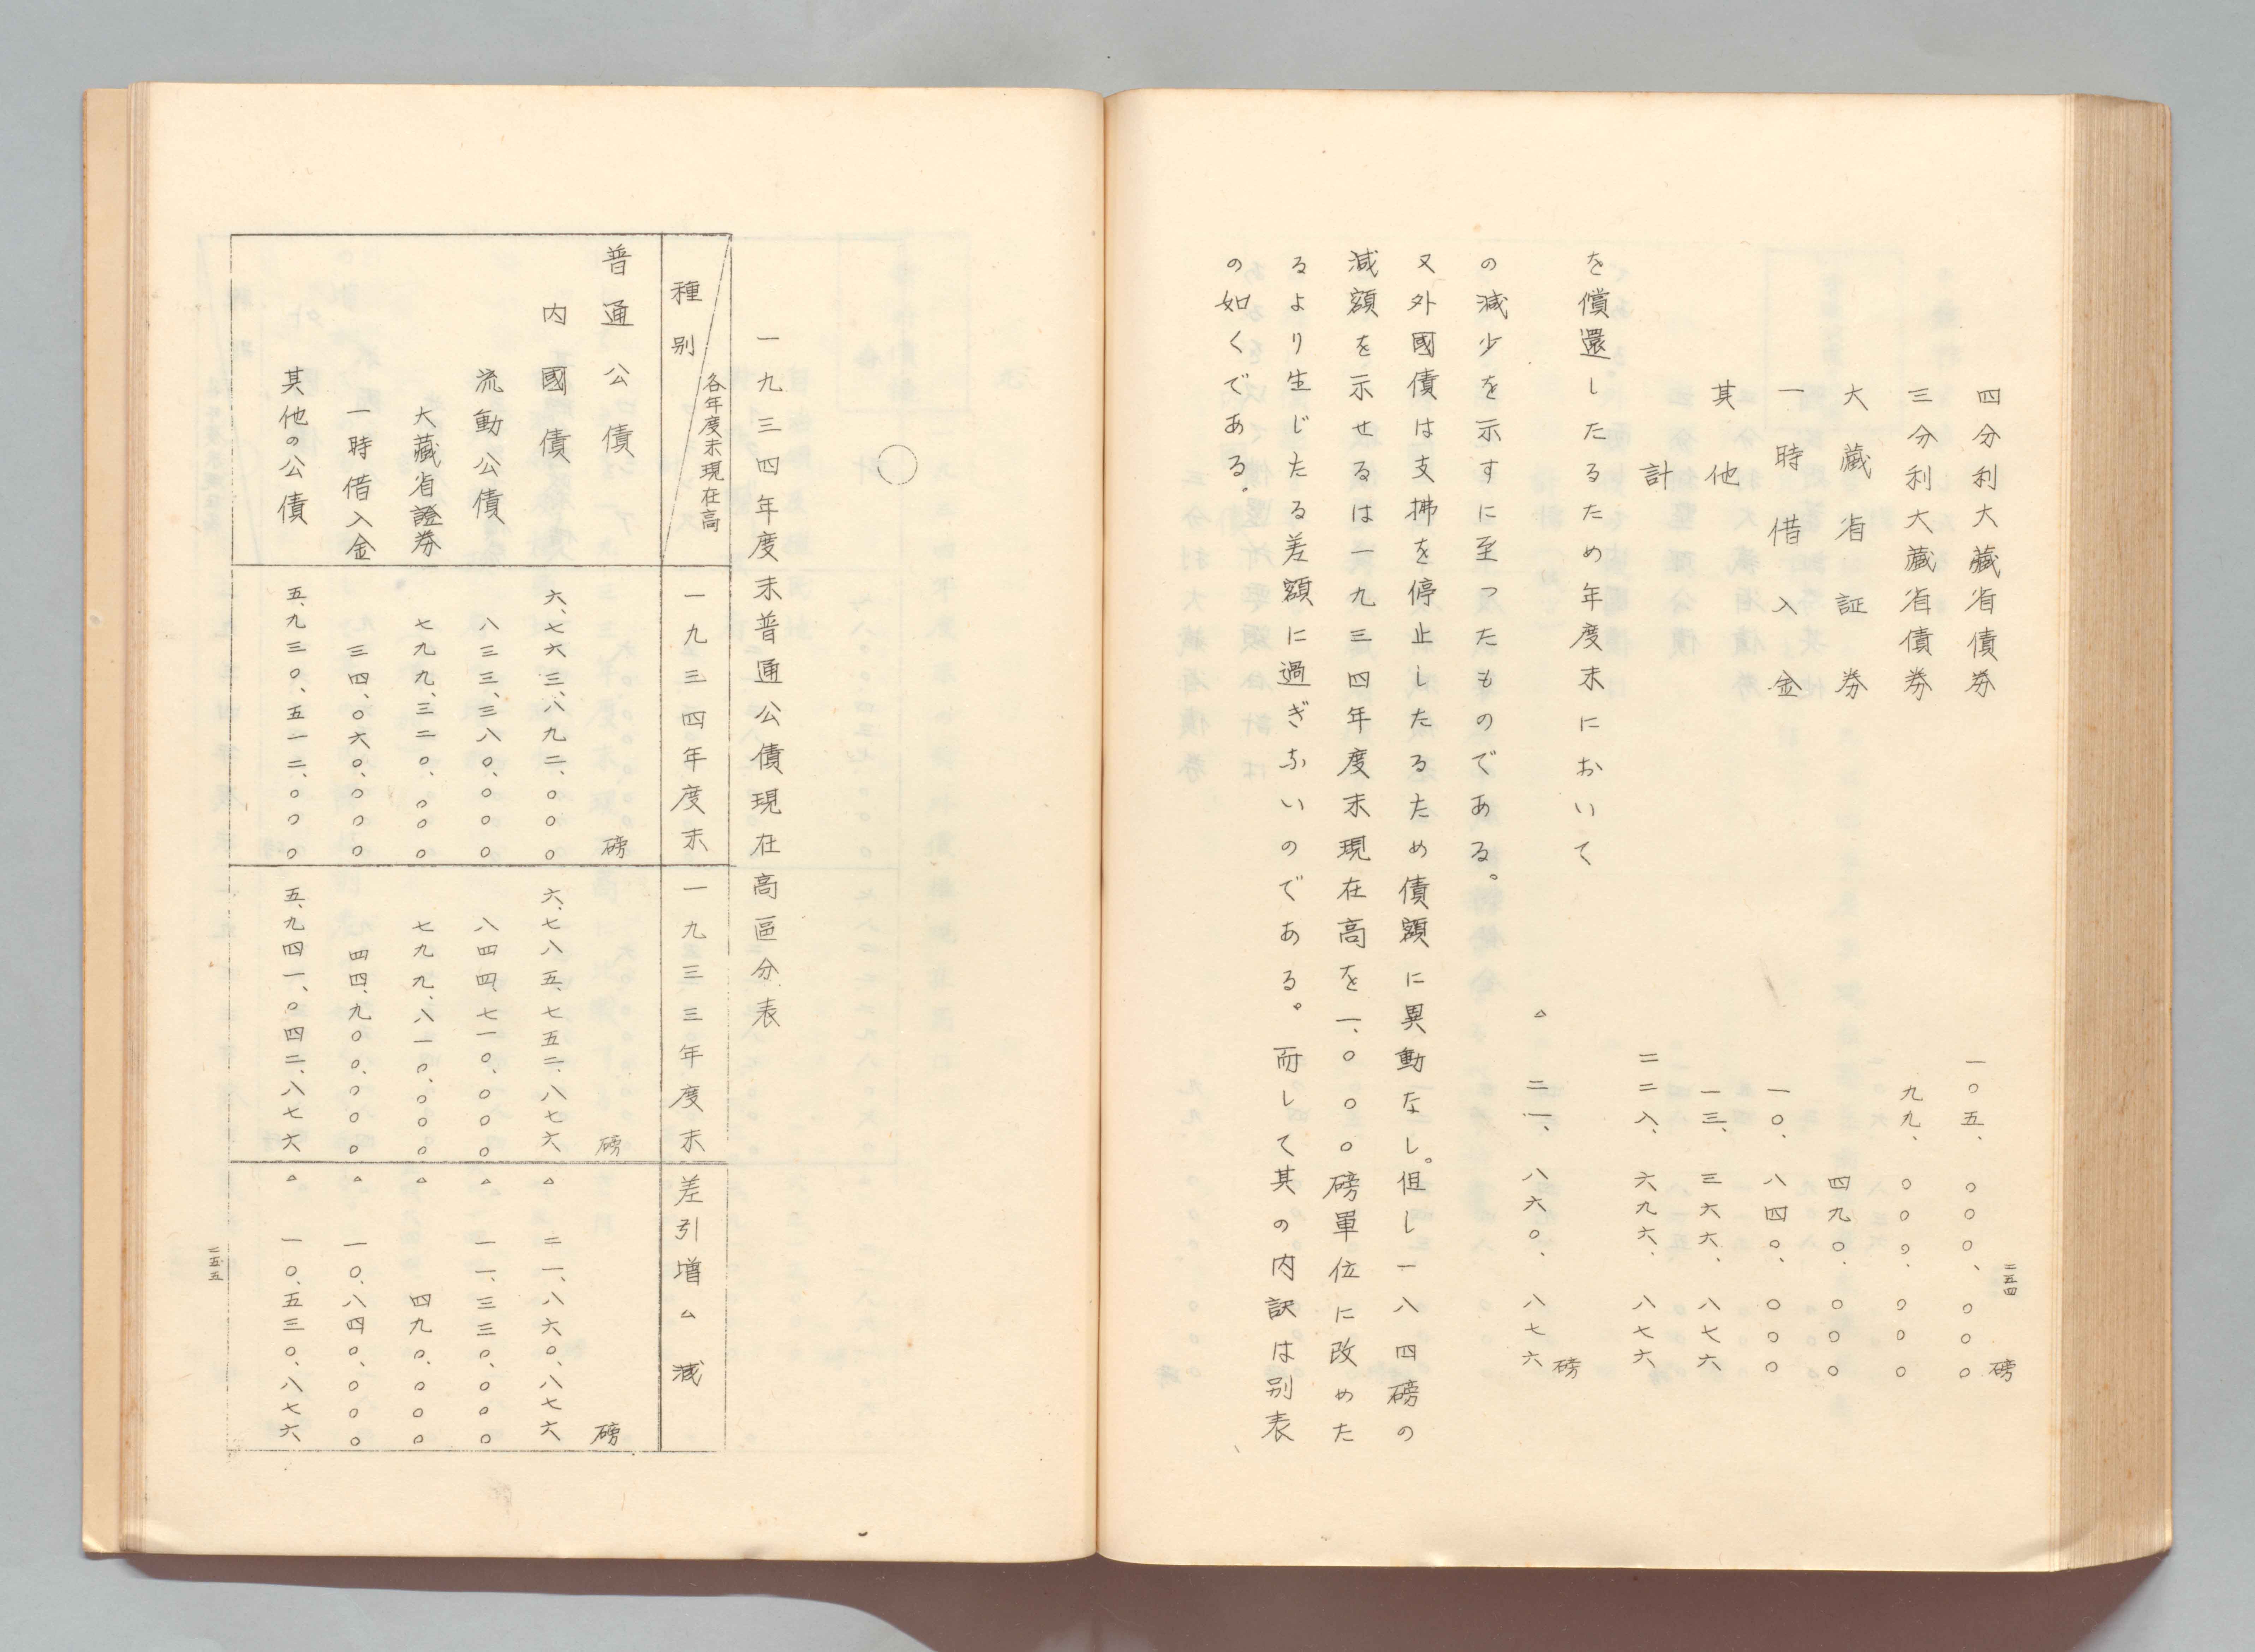 二五四
磅
四分利大藏省債券 一〇五、〇〇〇、〇〇〇
三分利大藏省債券 九九、〇〇〇、〇〇〇
大藏省証券 四九〇、〇〇〇
一時借入金 一〇、八四〇、〇〇〇
其他 一三、三六六、八七六
計 二二八、六九六、八七六
を償還したるため年度末において
磅
△ 二一、八六〇、八七六
の減少を示すに至つたものである。
又外國債は支拂を停止したるため債額に異動なし。但し一八四磅の
減額を示せるは一九三四年度末現在高を一、〇〇〇磅單位に改めた
るより生じたる差額に過ぎないのである。而して其の内訳は別表
の如くである。
一九三四年度末普通公債現在高區分表
各年度末現在高
種別 一九三四年度末 一九三三年度末 差引增△減
普通公債 磅 磅 磅
内國債 六、七六三、八九二、〇〇〇 六、七八五、七五二、八七六 △ 二一、八六〇、八七六
流動公債 八三三、三八〇、〇〇〇 八四四、七一〇、〇〇〇 △ 一一、三三〇、〇〇〇
大藏省證券 七九九、三二〇、〇〇〇 七九九、八一〇、〇〇〇 △ 四九〇、〇〇〇
一時借入金 三四、〇六〇、〇〇〇 四四、九〇〇、〇〇〇 △ 一〇、八四〇、〇〇〇
其他の公債 五、九三〇、五一二、〇〇〇 五、九四一、〇四二、八七六 △ 一〇、五三〇、八七六
二五五